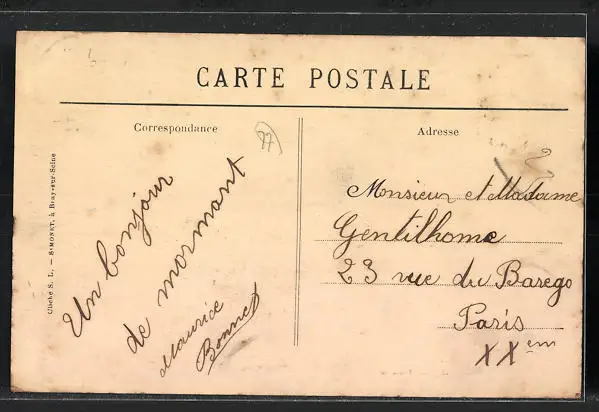 CARTE POSTALE
Correspondance
77
Adresse
Cliché S. L. — SIMONET, à Bray-sur-Seine
Un bonjour
de mormant
Maurice
Bonnet
Monsieur et Madame
Gentilhome
23 rue du Barego
Paris
XXem